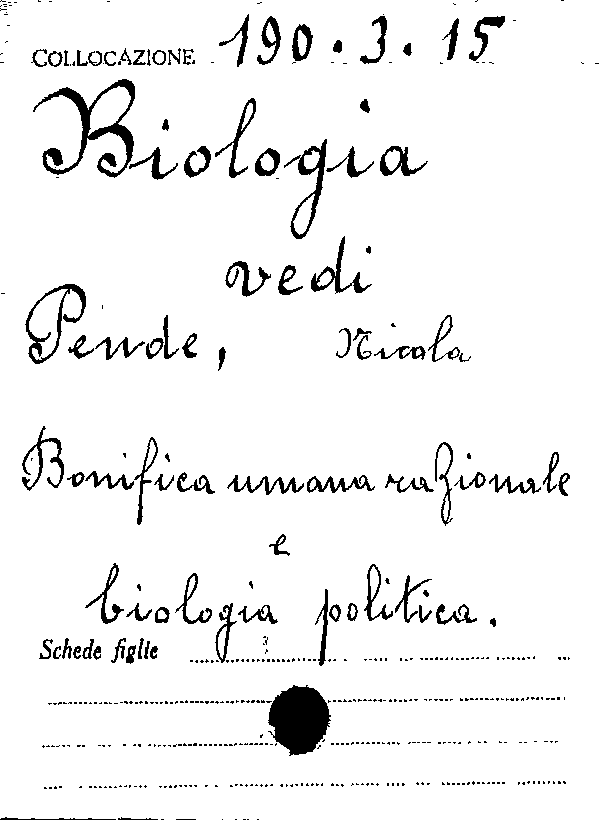 COLLOCAZIONE 190.3.15
Biologia
vedi
Pende, Nicola
Bonifica umana razionale
e
biologia politica.
Schede figlie